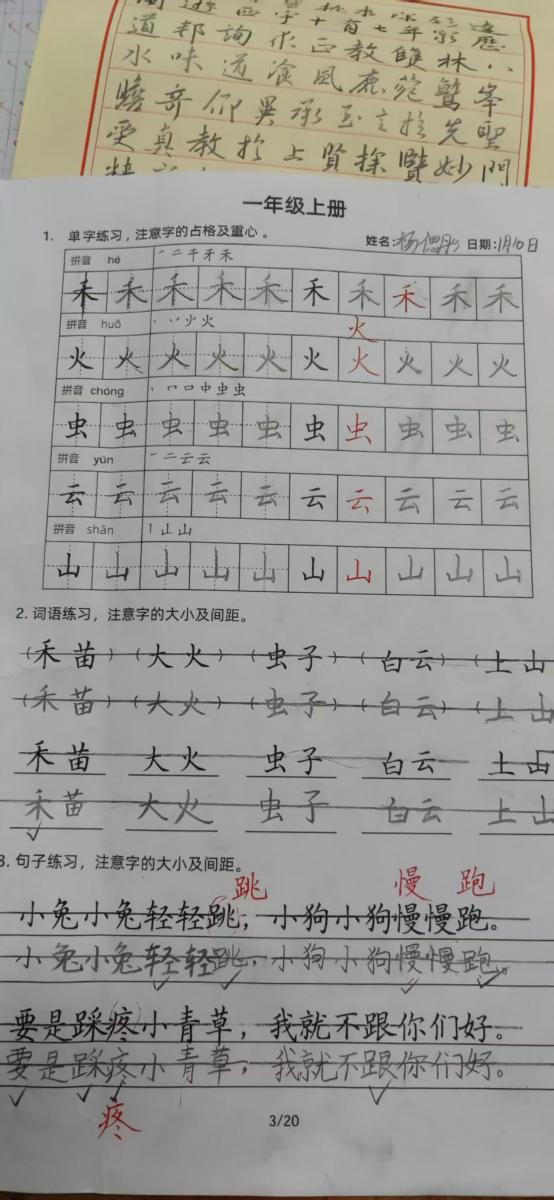 道邦詢求正教雖林八
水味道飡風鹿苑鷲峯
瞻奇仰異承至言於先聖
受真教於上賢探賾妙門
一年级上册
1. 单字练习,注意字的占格及重心。 姓名: 日期:1月10日
拼音 hé 一 二 千 禾 禾
禾 禾 禾 禾 禾 禾 禾 禾 禾 禾
拼音 huǒ 丶 丷 少 火 火
火 火 火 火 火 火 火 火 火 火
拼音 chóng 丶 口 口 中 虫 虫
虫 虫 虫 虫 虫 虫 虫 虫 虫 虫
拼音 yún 一 二 云 云
云 云 云 云 云 云 云 云 云 云
拼音 shān 丨 山 山
山 山 山 山 山 山 山 山 山 山
2. 词语练习,注意字的大小及间距。
(禾苗)(大火)(虫子)(白云)(上山
(禾苗)(大火)(虫子)(白云)(上山
禾苗 大火 虫子 白云 土山
禾苗 大火 虫子 白云 上山
3. 句子练习,注意字的大小及间距。
跳 慢 跑
小兔小兔轻轻跳,小狗小狗慢慢跑。
小兔小兔轻轻跳,小狗小狗慢慢跑。
要是踩疼小青草,我就不跟你们好。
要是踩疼小青草,我就不跟你们好。
疼
3/20